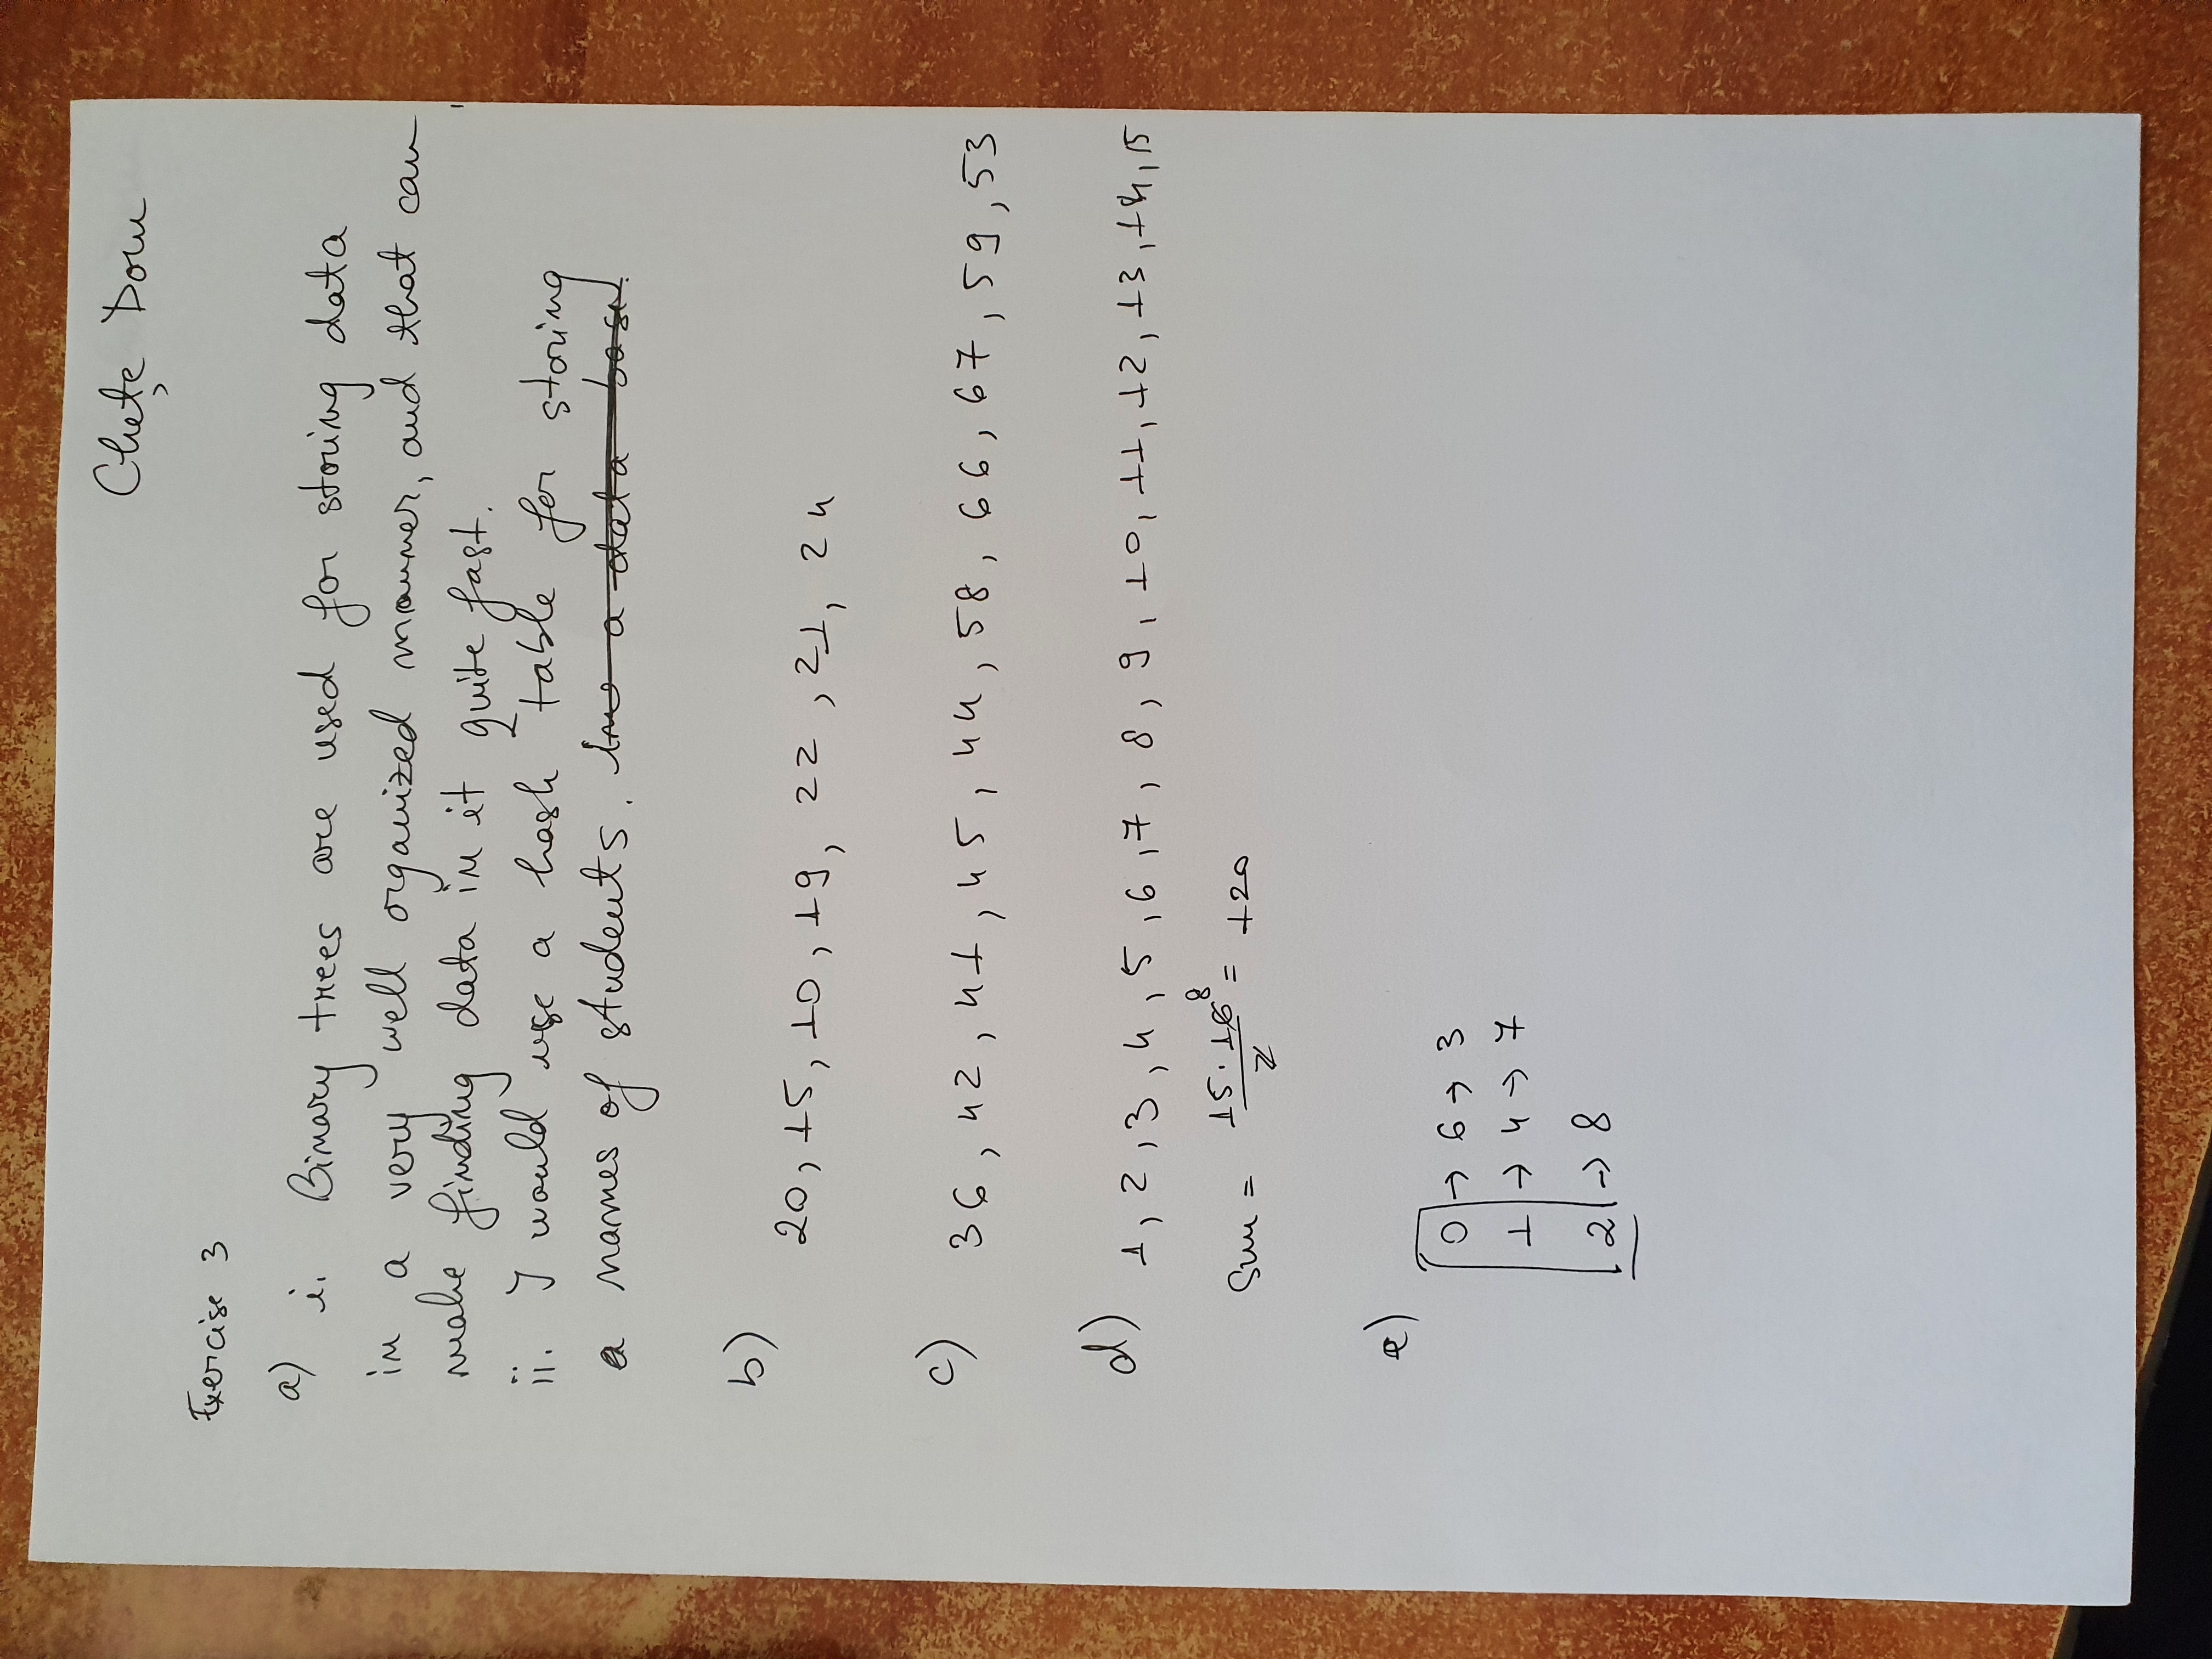 Chețe Doru
Exercise 3
a) i. Binary trees are used for storing data
in a very well organized manner, and that can
make finding data in it quite fast.
ii. I would use a hash table for storing
a names of students. in a data base.
b)
20, 15, 10, 19, 22, 21, 24
c) 36, 42, 41, 45, 44, 58, 66, 67, 59, 53
d) 1, 2, 3, 4, 5, 6, 7, 8, 9, 10, 11, 12, 13, 14, 15
Sum = 15 · 16 8 / 2 = 120
e)
0 → 6 → 3
1 → 4 → 7
2 → 8